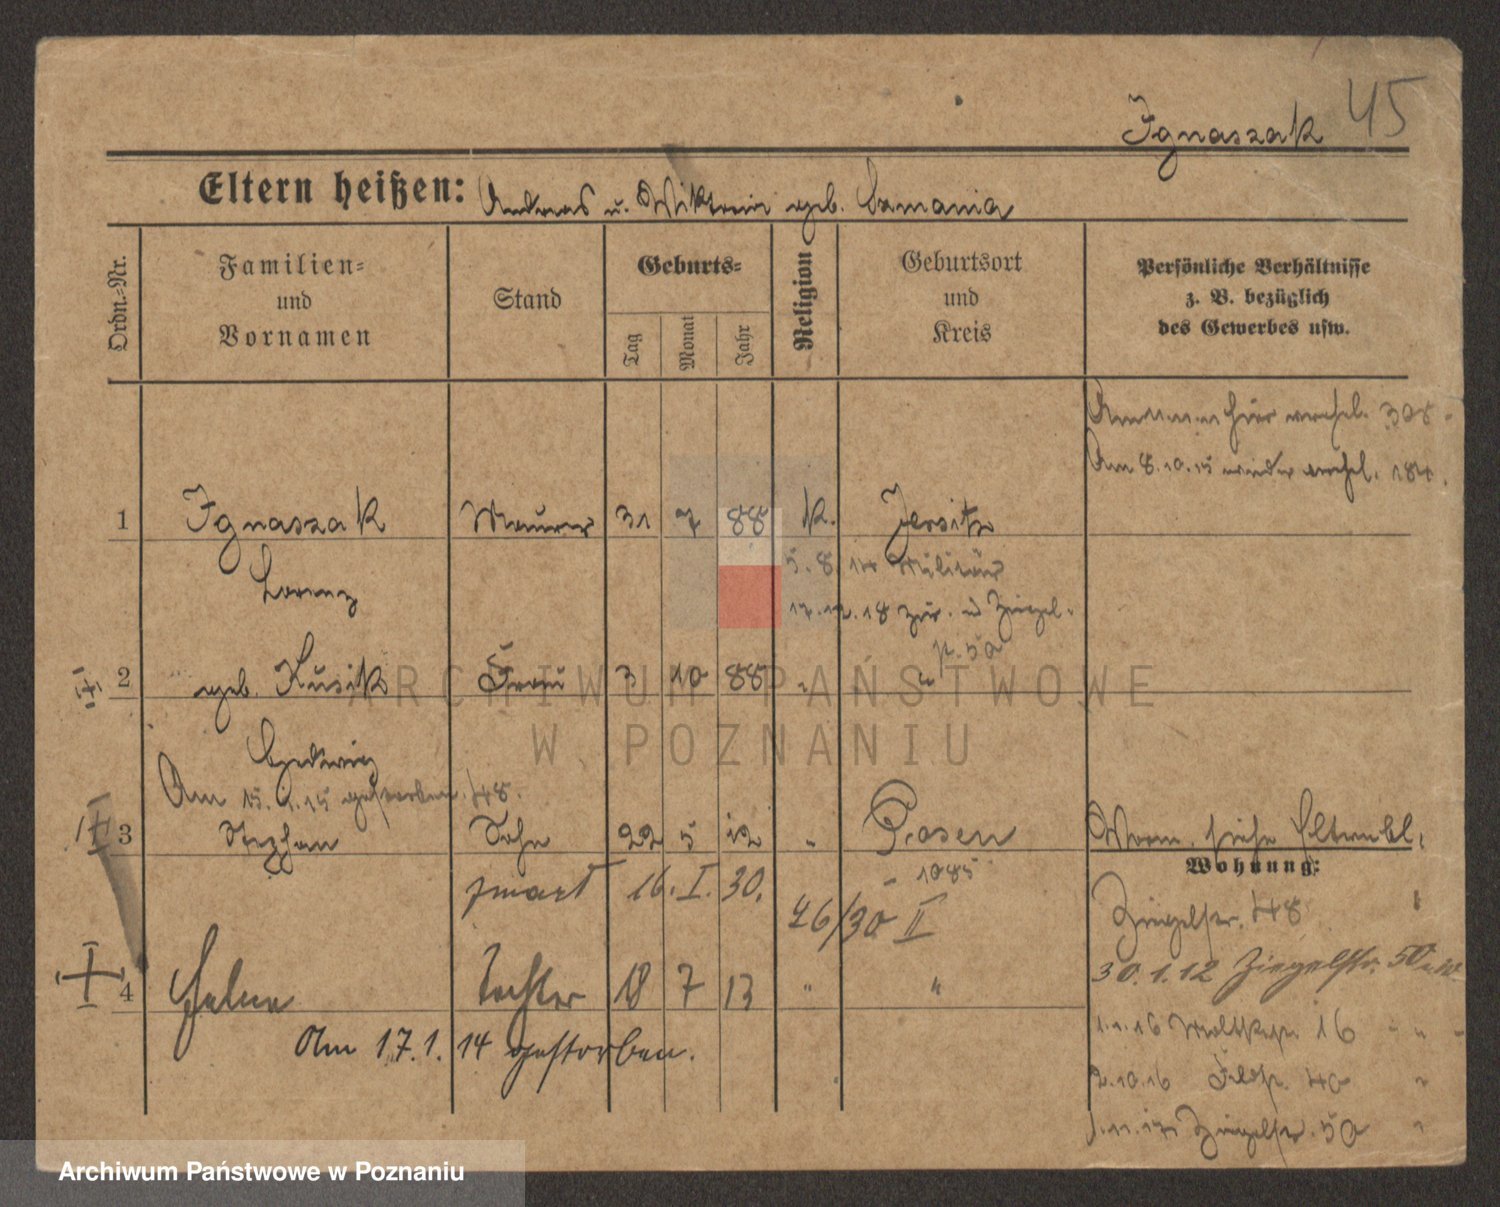 Ignaszak 45
Eltern heißen: Andreas u. Wiktoria geb.
Ordn.=Nr.
Familien=
und
Vornamen
Stand
Geburts=
Tag
Monat
Jahr
Religion
Geburtsort
und
Kreis
Persönliche Verhältnisse
z. B. bezüglich
des Gewerbes usw.
hier verehel. 308.
Am 8.10.15 wieder verehel. 184.
1 Ignaszak Maurer 31 7 88 k. Jersitz
Lorenz
5.8.14 Militär
17.12.18 zur. Ziegel-
str. 50
2 geb. Kusik Frau 3 10 88 " "
Hedwig
Am 15.1.15 gestorben. 48.
3 Stephan Sohn 22 5 12 " Posen
siehe
zmarł 16. I. 30. 1085
46/30 II
Wohnung:
Ziegelstr. 48
30.1.12 Ziegelstr. 50
4 Helene Tochter 18 7 13 " "
Am 17.1.14 gestorben.
1.1.16 Moltkestr. 16 " "
2.10.16 Feldstr. 40 "
Ziegelstr. 50 "
ARCHIWUM PAŃSTWOWE
W POZNANIU
Archiwum Państwowe w Poznaniu